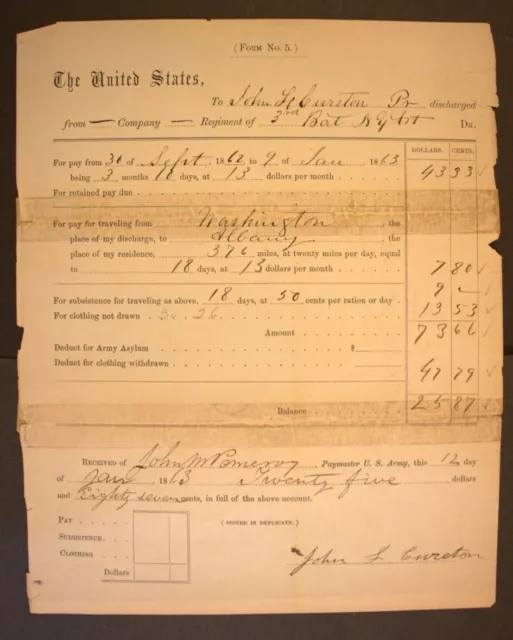 (Form No. 5.)
The United States,
To John L Cureton Pr discharged
from — Company — Regiment of 3rd Bat N.Y. Art Dr.
DOLLARS. CENTS.
For pay from 30 of Sept 1862 to 9 of Jan 1863
being 3 months 10 days, at 13 dollars per month 43 33
For retained pay due
For pay for traveling from Washington the
place of my discharge, to Albany the
place of my residence, 376 miles, at twenty miles per day, equal
to 18 days, at 13 dollars per month 7 80
For subsistence for traveling as above, 18 days, at 50 cents per ration or day 9 –
For clothing not drawn 13 53
Amount 73 66
Deduct for Army Asylum $
Deduct for clothing withdrawn 47 79
Balance 25 87
Received of John M Pomeroy Paymaster U. S. Army, this 12 day
of Jany 1863 Twenty five dollars
and Eighty seven cents, in full of the above account.
Pay
(SIGNED IN DUPLICATE.)
Subsistence
Clothing
Dollars
John L Cureton